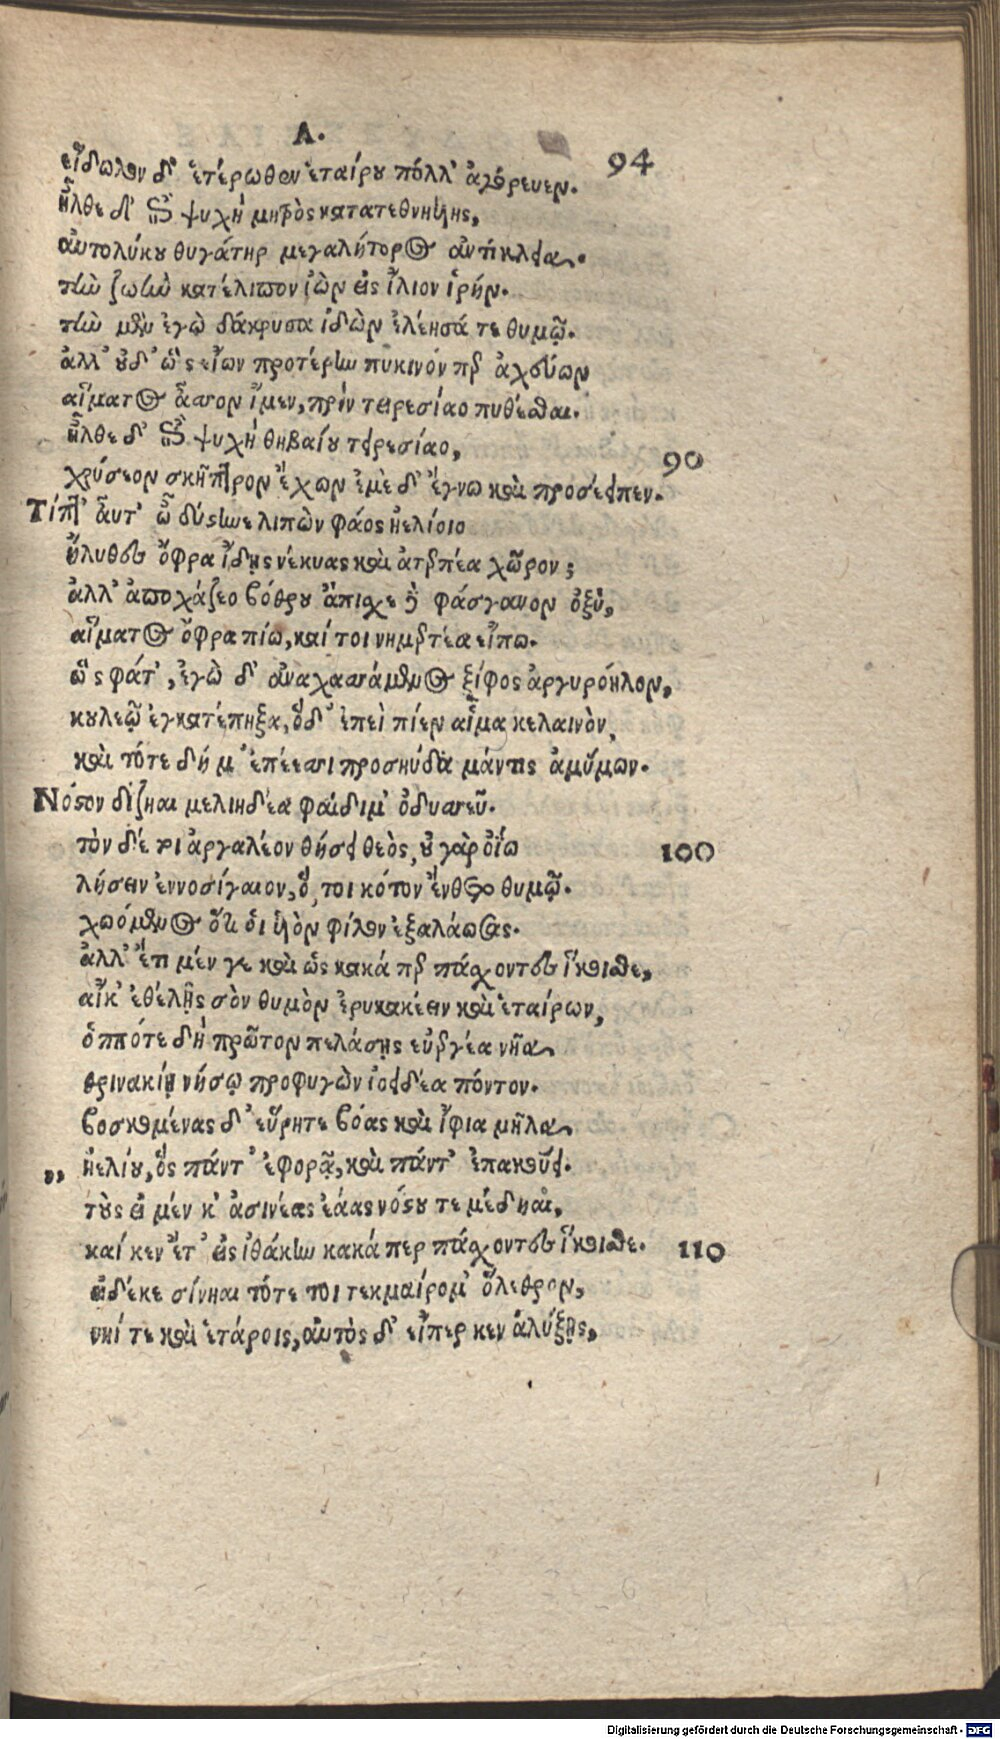 Λ.
94
εἴδωλον δ' ἑτέρωθεν ἑταίρου πόλλ' ἀγόρευεν.
ἦλθε δ' ἐπὶ ψυχὴ μητρὸς κατατεθνηίης,
αὐτολύκου θυγάτηρ μεγαλήτορος ἀντίκλεια.
τὴν ζωὴν κατέλιπον ἰὼν εἰς ἴλιον ἱρήν.
τὴν μὲν ἐγὼ δάκρυσα ἰδὼν ἐλέησά τε θυμῷ.
ἀλλ' οὐδ' ὣς εἴων προτέρην πυκινόν περ ἀχεύων
αἵματος ἆσσον ἴμεν, πρίν τειρεσίαο πυθέσθαι.
ἦλθε δ' ἐπὶ ψυχὴ θηβαίου τειρεσίαο,
90
χρύσεον σκῆπτρον ἔχων ἐμὲ δ' ἔγνω καὶ προσέειπεν.
Τίπτ' αὖτ' ὦ δύστηνε λιπὼν φάος ἠελίοιο
ἤλυθες ὄφρα ἴδῃς νέκυας καὶ ἀτερπέα χῶρον;
ἀλλ' ἀποχάζεο βόθρου ἄπισχε δὲ φάσγανον ὀξὺ,
αἵματος ὄφρα πίω, καί τοι νημερτέα εἴπω.
ὣς φάτ', ἐγὼ δ' ἀναχασσάμενος ξίφος ἀργυρόηλον,
κουλεῷ ἐγκατέπηξα, ὅδ' ἐπεὶ πίεν αἷμα κελαινὸν,
καὶ τότε δή μ' ἐπέεσσι προσηύδα μάντις ἀμύμων.
Νόστον δίζηαι μελιηδέα φαίδιμ' ὀδυσσεῦ.
τὸν δέ τι ἀργαλέον θήσει θεὸς, οὐ γὰρ ὀΐω
100
λήσειν ἐννοσίγαιον, ὅ, τοι κότον ἔνθετο θυμῷ.
χωόμενος ὅτι οἱ υἱὸν φίλον ἐξαλάωσας.
ἀλλ' ἔτι μέν γε καὶ ὣς κακά περ πάσχοντες ἵκοισθε,
αἴκ' ἐθέλῃς σὸν θυμὸν ἐρυκακέειν καὶ ἑταίρων,
ὁππότε δὴ πρῶτον πελάσῃς εὐεργέα νῆα
θρινακίῃ νήσῳ προφυγὼν ἰοειδέα πόντον.
βοσκομένας δ' εὕρητε βόας καὶ ἴφια μῆλα
„ ἠελίου, ὃς πάντ' ἐφορᾷ, καὶ πάντ' ἐπακούει.
τοὺς εἰ μέν κ' ἀσινέας ἐάας νόστου τε μέδηαι,
καί κεν ἔτ' εἰς ἰθάκην κακά περ πάσχοντες ἵκοισθε.
110
εἰδέκε σίνηαι τότε τοι τεκμαίρομ' ὄλεθρον,
νηί τε καὶ ἑτάροις, αὐτὸς δ' εἴπερ κεν ἀλύξῃς,
Digitalisierung gefördert durch die Deutsche Forschungsgemeinschaft - DFG